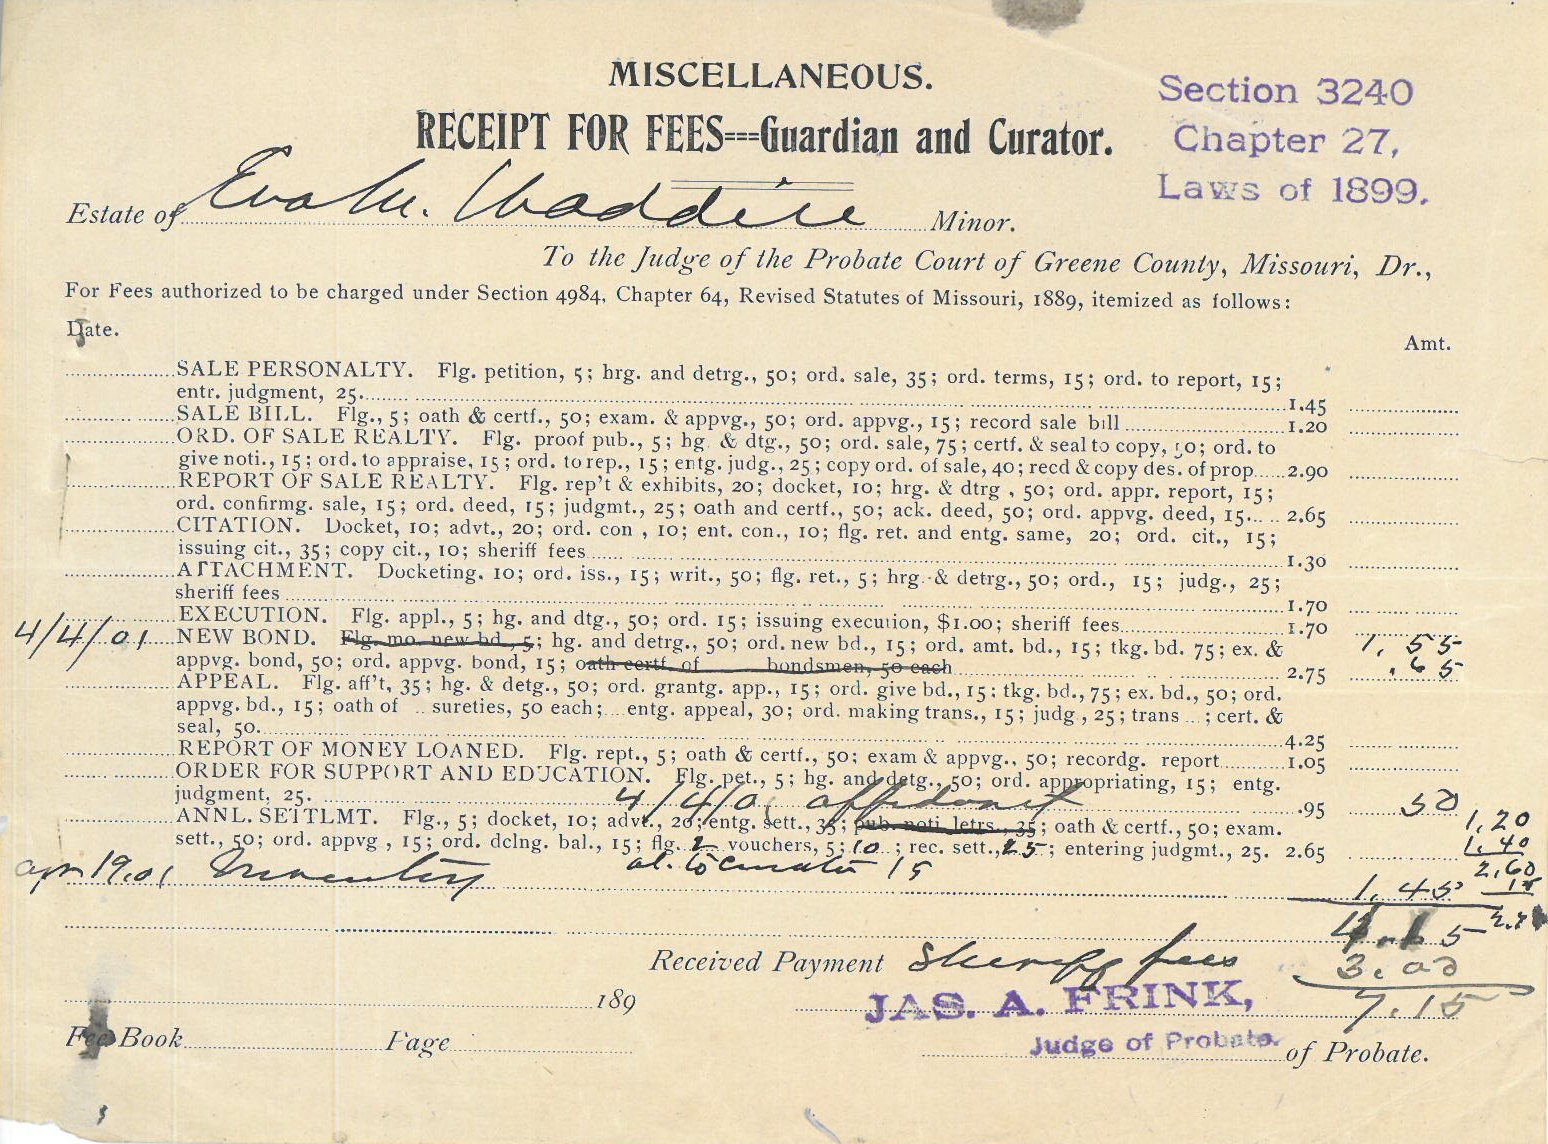 MISCELLANEOUS.
RECEIPT FOR FEES===Guardian and Curator.
Section 3240
Chapter 27,
Laws of 1899.
Estate of Eva M. Waddill Minor.
To the Judge of the Probate Court of Greene County, Missouri, Dr.,
For Fees authorized to be charged under Section 4984, Chapter 64, Revised Statutes of Missouri, 1889, itemized as follows:
Date.
Amt.
SALE PERSONALTY. Flg. petition, 5; hrg. and detrg., 50; ord. sale, 35; ord. terms, 15; ord. to report, 15;
entr. judgment, 25. 1.45
SALE BILL. Flg., 5; oath & certf., 50; exam. & appvg., 50; ord. appvg., 15; record sale bill 1.20
ORD. OF SALE REALTY. Flg. proof pub., 5; hg & dtg., 50; ord. sale, 75; certf. & seal to copy, 50; ord. to
give noti., 15; ord. to appraise, 15; ord. to rep., 15; entg. judg., 25; copy ord. of sale, 40; recd & copy des. of prop. 2.90
REPORT OF SALE REALTY. Flg. rep't & exhibits, 20; docket, 10; hrg. & dtrg , 50; ord. appr. report, 15;
ord. confirmg. sale, 15; ord. deed, 15; judgmt., 25; oath and certf., 50; ack. deed, 50; ord. appvg. deed, 15. 2.65
CITATION. Docket, 10; advt., 20; ord. con , 10; ent. con., 10; flg. ret. and entg. same, 20; ord. cit., 15;
issuing cit., 35; copy cit., 10; sheriff fees 1.30
ATTACHMENT. Docketing. 10; ord. iss., 15; writ., 50; flg. ret., 5; hrg. & detrg., 50; ord., 15; judg., 25;
sheriff fees 1.70
EXECUTION. Flg. appl., 5; hg. and dtg., 50; ord. 15; issuing execution, $1.00; sheriff fees 1.70
4/4/01 NEW BOND. Flg. mo. new bd., 5; hg. and detrg., 50; ord. new bd., 15; ord. amt. bd., 15; tkg. bd. 75; ex. & 1.55
appvg. bond, 50; ord. appvg. bond, 15; oath certf. of bondsmen, 50 each 2.75 .65
APPEAL. Flg. aff't, 35; hg. & detg., 50; ord. grantg. app., 15; ord. give bd., 15; tkg. bd., 75; ex. bd., 50; ord.
appvg. bd., 15; oath of sureties, 50 each; entg. appeal, 30; ord. making trans., 15; judg , 25; trans ; cert. &
seal, 50. 4.25
REPORT OF MONEY LOANED. Flg. rept., 5; oath & certf., 50; exam & appvg., 50; recordg. report 1.05
ORDER FOR SUPPORT AND EDUCATION. Flg. pet., 5; hg. and detg., 50; ord. appropriating, 15; entg.
judgment, 25. 4/4/01 affidavit .95 50
ANNL. SETTLMT. Flg., 5; docket, 10; advt., 20; entg. sett., 35; pub. noti. letrs., 35; oath & certf., 50; exam. 1,20
sett., 50; ord. appvg , 15; ord. dclng. bal., 15; flg. 2 vouchers, 5; 10 ; rec. sett., 25 ; entering judgmt., 25. 2.65 1.40
2.60
al. to curator 15
apr 19.01 Inventory 1.45
4.15
Received Payment Sheriff fees 3.00
7.15
189
JAS. A. FRINK,
Judge of Probate.
Fee Book Page of Probate.